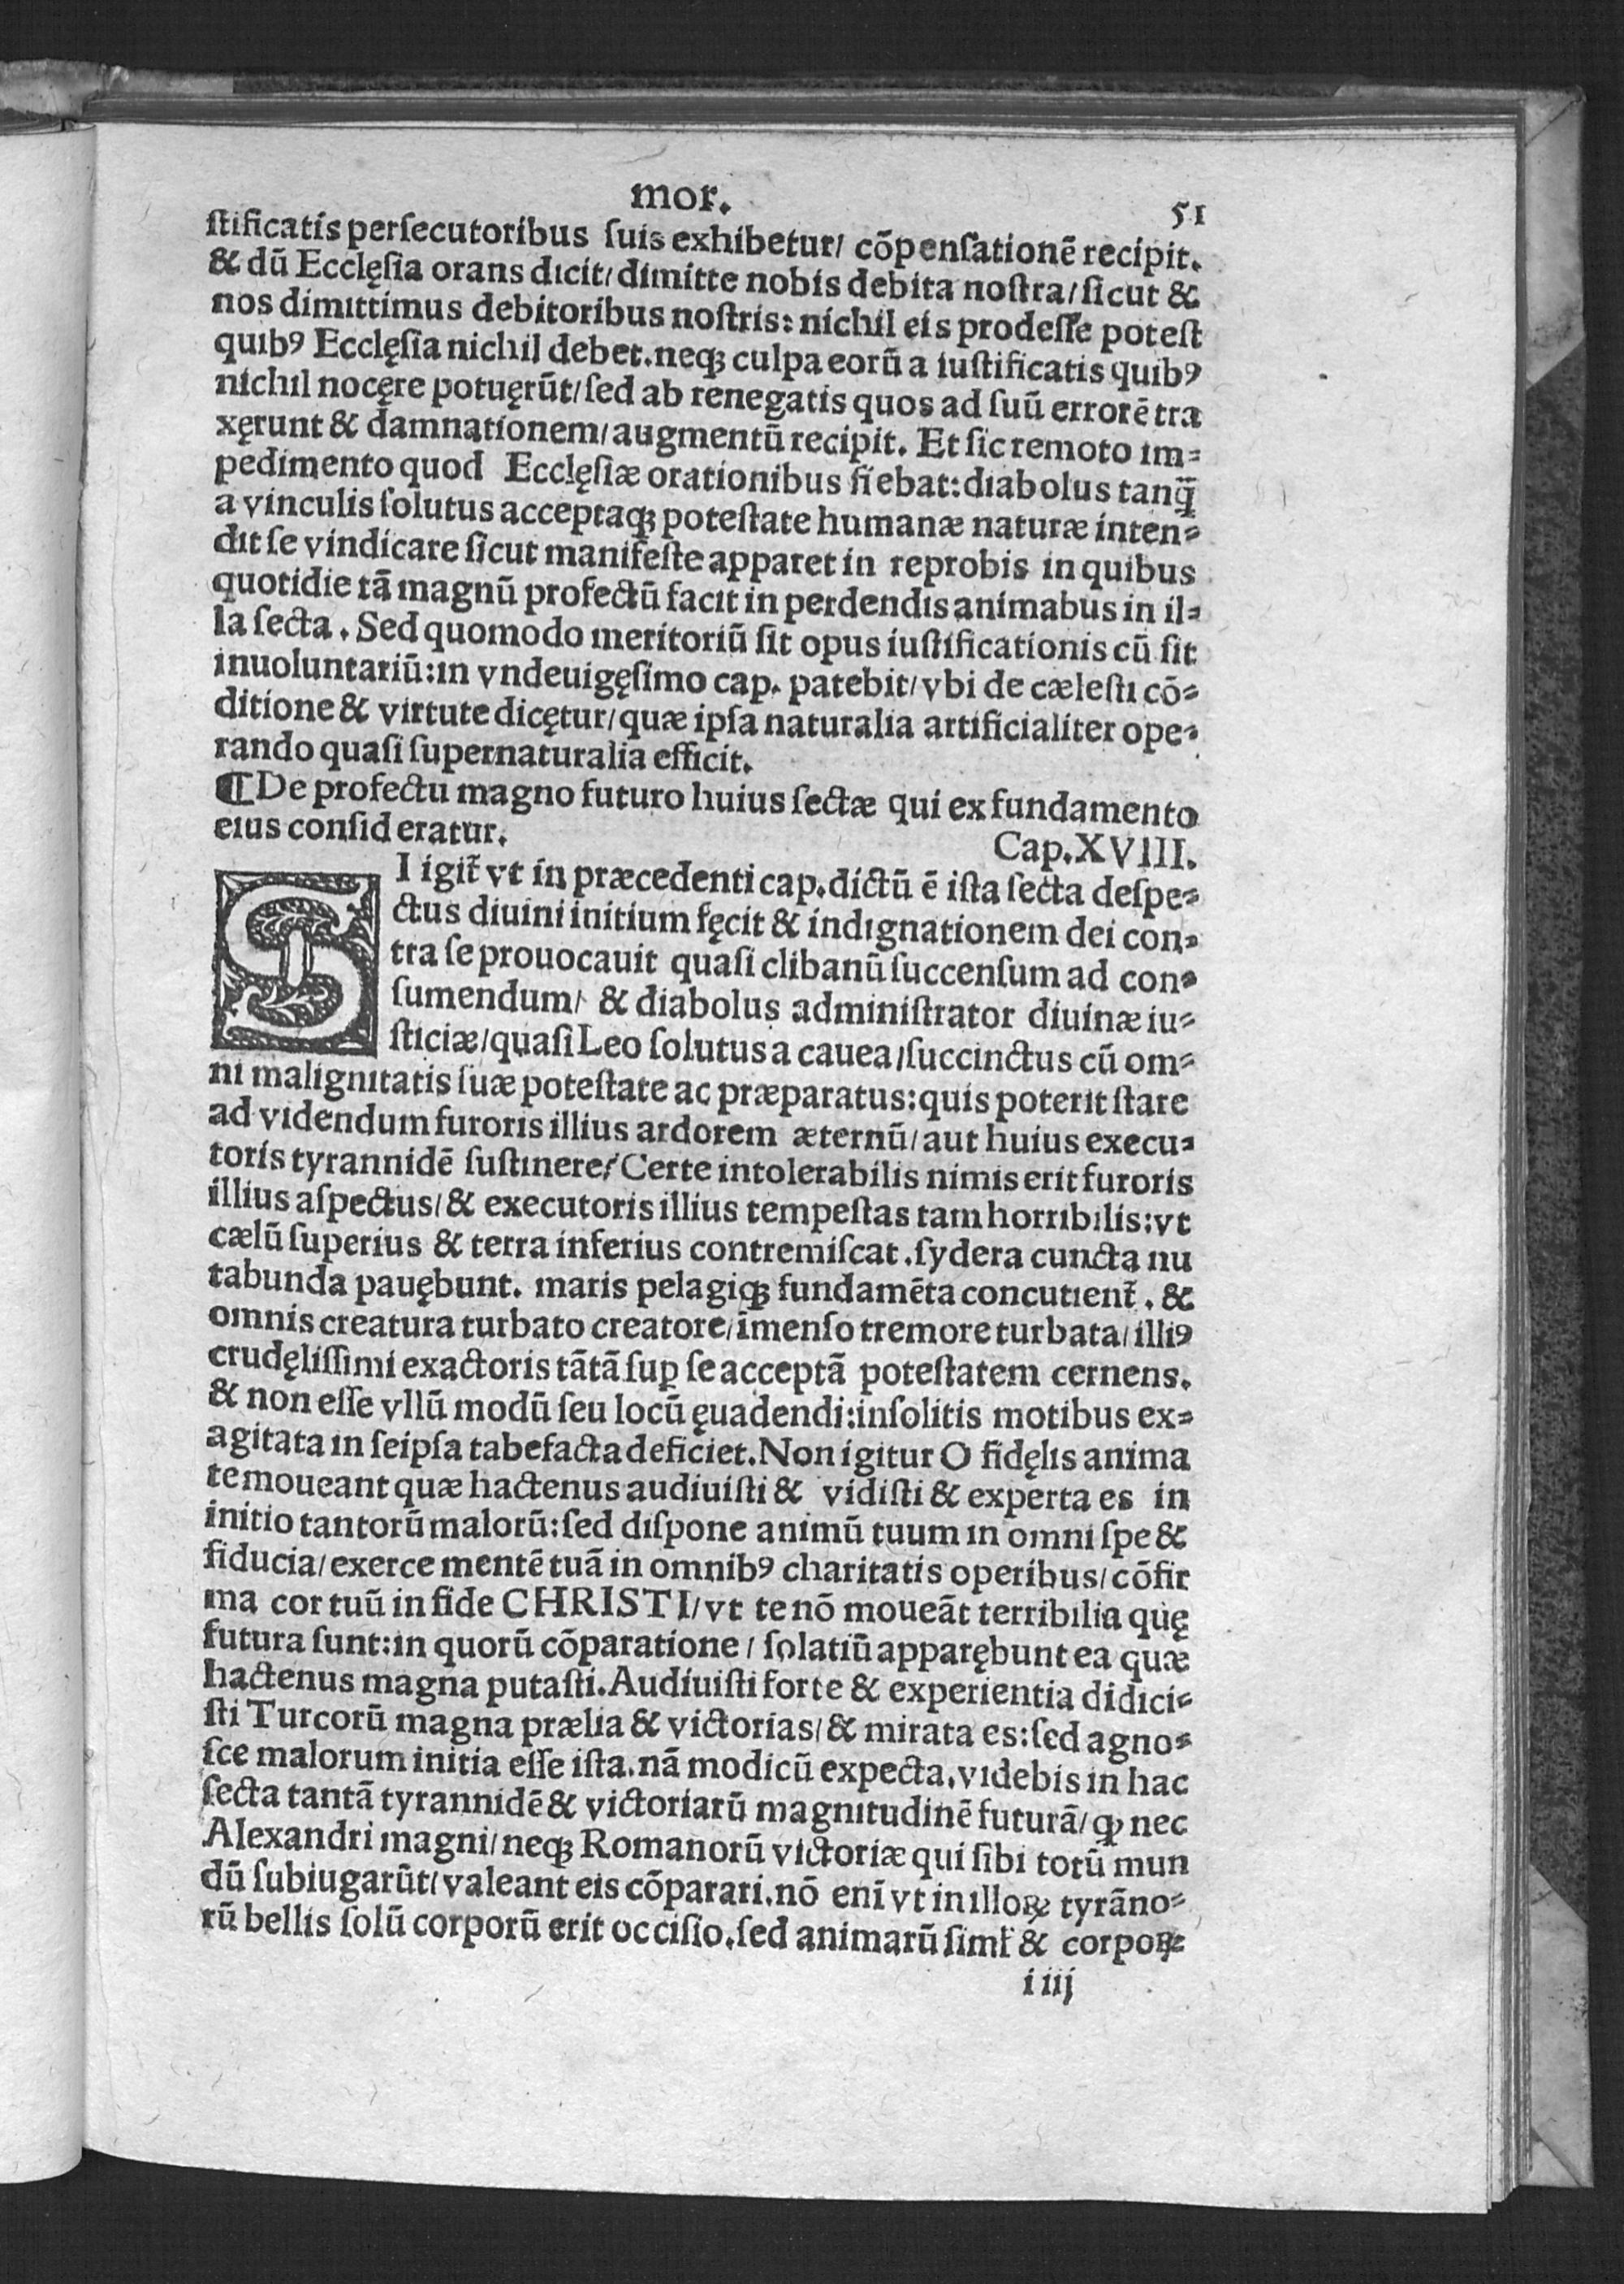 mor.
51
ſtificatis perſecutoribus ſuis exhibetur/ cõpenſationẽ recipit.
& dũ Eccleſia orans dicit/ dimitte nobis debita noſtra/ ſicut &
nos dimittimus debitoribus noſtris: nichil eis prodeſſe poteſt
quibꝰ Eccleſia nichil debet. neqꝫ culpa eorũ a iuſtificatis quibꝰ
nichil nocęre potuęrũt/ ſed ab renegatis quos ad ſuũ errorẽ tra
xęrunt & damnationem/ augmentũ recipit. Et ſic remoto im⸗
pedimento quod Ecclęſiæ orationibus fiebat: diabolus tanq̃
a vinculis ſolutus acceptaqꝫ poteſtate humanæ naturæ inten⸗
dit ſe vindicare ſicut manifeſte apparet in reprobis in quibus
quotidie tã magnũ profectũ facit in perdendis animabus in il⸗
la ſecta. Sed quomodo meritoriũ ſit opus iuſtificationis cũ ſit
inuoluntariũ: in vndeuigęſimo cap. patebit/ vbi de cæleſti cõ⸗
ditione & virtute dicętur/ quæ ipſa naturalia artificialiter ope⸗
rando quaſi ſupernaturalia efficit.
¶De profectu magno futuro huius ſectæ qui ex fundamento
eius conſideratur. Cap. XVIII.
SI igit̃ vt in præcedenti cap. dictũ ẽ iſta ſecta deſpe⸗
ctus diuini initium fęcit & indignationem dei con⸗
tra ſe prouocauit quaſi clibanũ ſuccenſum ad con⸗
ſumendum/ & diabolus adminiſtrator diuinæ iu⸗
ſticiæ/ quaſi Leo ſolutus a cauea/ ſuccinctus cũ om⸗
ni malignitatis ſuæ poteſtate ac præparatus: quis poterit ſtare
ad videndum furoris illius ardorem æternũ/ aut huius execu⸗
toris tyrannidẽ ſuſtinere? Certe intolerabilis nimis erit furoris
illius aſpectus/ & executoris illius tempeſtas tam horribilis: vt
cælũ ſuperius & terra inferius contremiſcat. ſydera cuncta nu
tabunda pauębunt. maris pelagiqꝫ fundamẽta concutient̃. &
omnis creatura turbato creatore/ ĩmenſo tremore turbata/ illiꝰ
crudęliſſimi exactoris tãtã ſuꝑ ſe acceptã poteſtatem cernens.
& non eſſe vllũ modũ ſeu locũ ęuadendi: inſolitis motibus ex⸗
agitata in ſeipſa tabefacta deficiet. Non igitur O fidęlis anima
te moueant quæ hactenus audiuiſti & vidiſti & experta es in
initio tantorũ malorũ: ſed diſpone animũ tuum in omni ſpe &
fiducia/ exerce mentẽ tuã in omnibꝰ charitatis operibus/ cõfir
ma cor tuũ in fide CHRISTI/ vt te nõ moueãt terribilia quę
futura ſunt: in quorũ cõparatione / ſolatiũ apparębunt ea quæ
hactenus magna putaſti. Audiuiſti forte & experientia didici⸗
ſti Turcorũ magna prælia & victorias/ & mirata es: ſed agno⸗
ſce malorum initia eſſe iſta. nã modicũ expecta, videbis in hac
ſecta tantã tyrannidẽ & victoriarũ magnitudinẽ futurã/ ꝙ nec
Alexandri magni/ neqꝫ Romanorũ victoriæ qui ſibi totũ mun
dũ ſubiugarũt/ valeant eis cõparari. nõ enĩ vt in illoꝝ tyrãno⸗
rũ bellis ſolũ corporũ erit occiſio. ſed animarũ ſiml̃ & corpoꝝ⸗
i iij